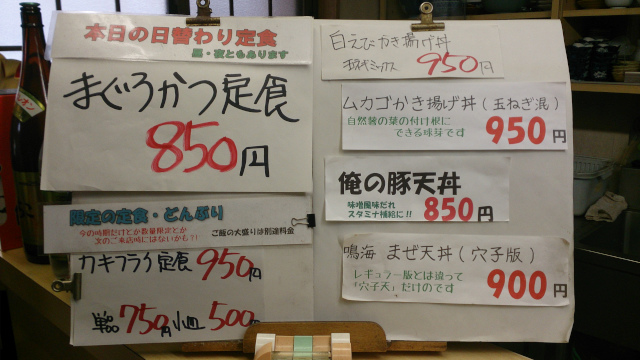 本日の日替わり定食
昼・夜ともあります
まぐろかつ定食
850円
限定の定食・どんぶり
今の時期だけとか数量限定とか
次のご来店時にはないかも?!
ご飯の大盛りは別途料金
カキフライ定食 950円
単品 750円 小皿 500円
白えびかき揚げ丼
玉ネギミックス 950円
ムカゴかき揚げ丼(玉ねぎ混)
自然薯の葉の付け根に
できる球芽です 950円
俺の豚天丼
味噌風味だれ
スタミナ補給に!! 850円
鳴海 まぜ天丼(穴子版)
レギュラー版とは違って
「穴子天」だけのです 900円